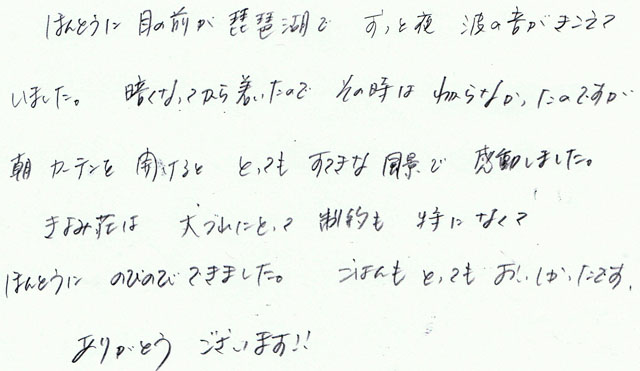 ほんとうに 目の前が 琵琶湖で ずっと夜 波の音がきこえて
いました。 暗くなってから着いたので その時は わからなかったのですが
朝 カーテンを 開けると とっても すてきな 風景で 感動しました。
きよみ荘は 犬づれにとって 制約も 特に なくて
ほんとうに のびのびできました。 ごはんも とっても おいしかったです。
ありがとう ございます!!